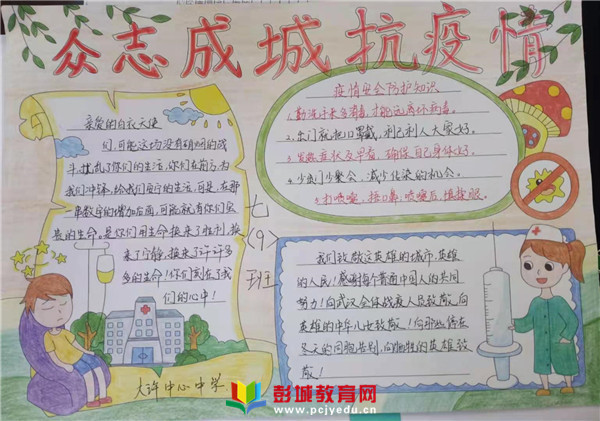 众志成城抗疫情
亲爱的白衣天使
们,可能这场没有硝烟的战
争,扰乱了你们的生活,你们在前方为
我们冲锋,给我们安宁的生活,可是,在那
一串数字的增加后面,可能就有你们宝
贵的生命。是你们用生命换来了胜利,换
来了宁静,换来了许许多
多的生命!你们刻在了我
们的心中!
七
(9)
班
疫情安全防护知识
1.勤洗手来多消毒,才能远离坏病毒。
2.出门就把口罩戴,利己利人大家好。
3.发热症状及早看,确保自己身体好。
4.少出门少聚会,减少传染的机会。
5.打喷嚏,捂口鼻,喷嚏后,慎揉眼。
我们致敬这英雄的城市,英雄
的人民!感谢每个普通中国人的共同
努力!向武汉全体战疫人民致敬,向
英雄的中华儿女致敬!向那些倒在
冬天的同胞告别,向牺牲的英雄致
敬!
大许中心中学
彭城教育网
www.pcjyedu.cn